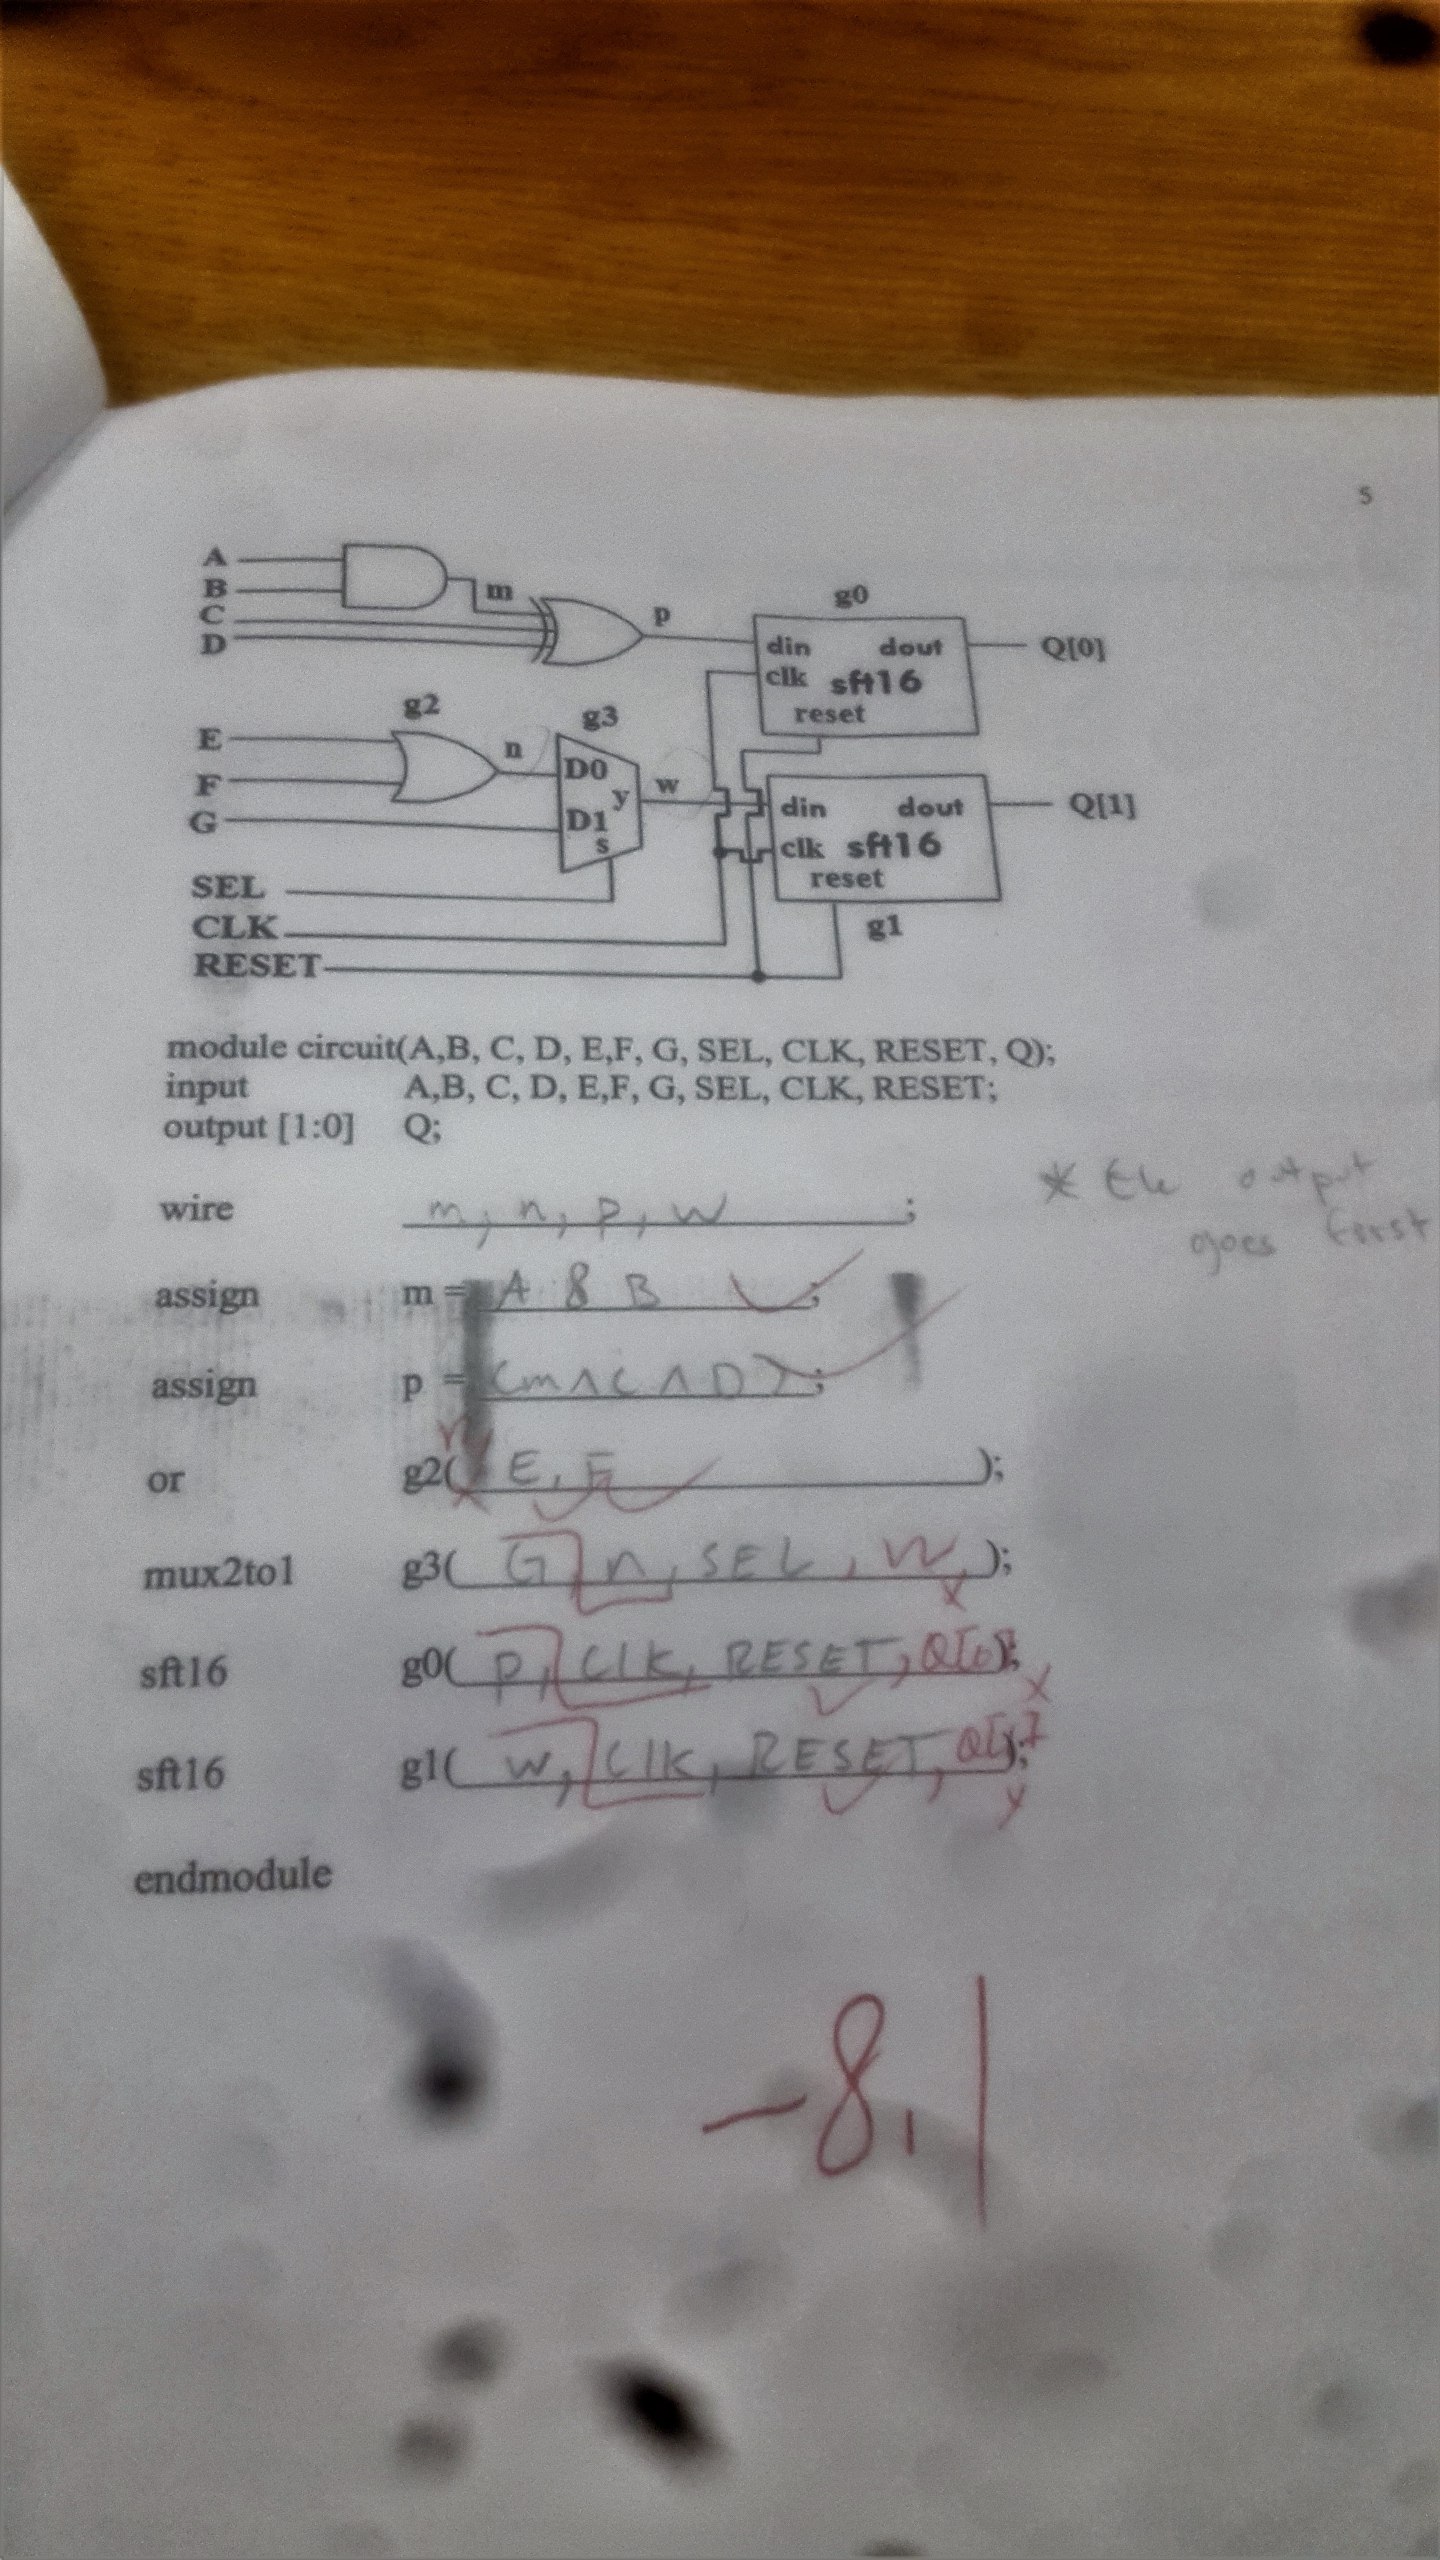 5
A
B
C
D
m
p
g0
din dout
clk sft16
reset
Q[0]
E
F
G
g2
n
g3
D0
y
D1
s
w
din dout
clk sft16
reset
g1
Q[1]
SEL
CLK
RESET
module circuit(A,B, C, D, E,F, G, SEL, CLK, RESET, Q);
input A,B, C, D, E,F, G, SEL, CLK, RESET;
output [1:0] Q;
wire m, n, p, w ;
* the output
goes first
assign m = A & B ;
assign p = (m ^ C ^ D) ;
or g2( n, E, F );
mux2to1 g3( G, n, SEL, W );
sft16 g0( p, Clk, RESET, Q[0] );
sft16 g1( w, Clk, RESET, Q[1] );
endmodule
-8.1